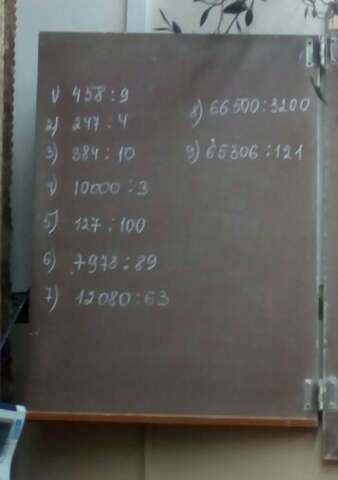 1) 458 : 9
2) 247 : 4
3) 384 : 10
4) 10000 : 3
5) 127 : 100
6) 7978 : 89
7) 12080 : 63
8) 66500 : 3200
9) 65306 : 121